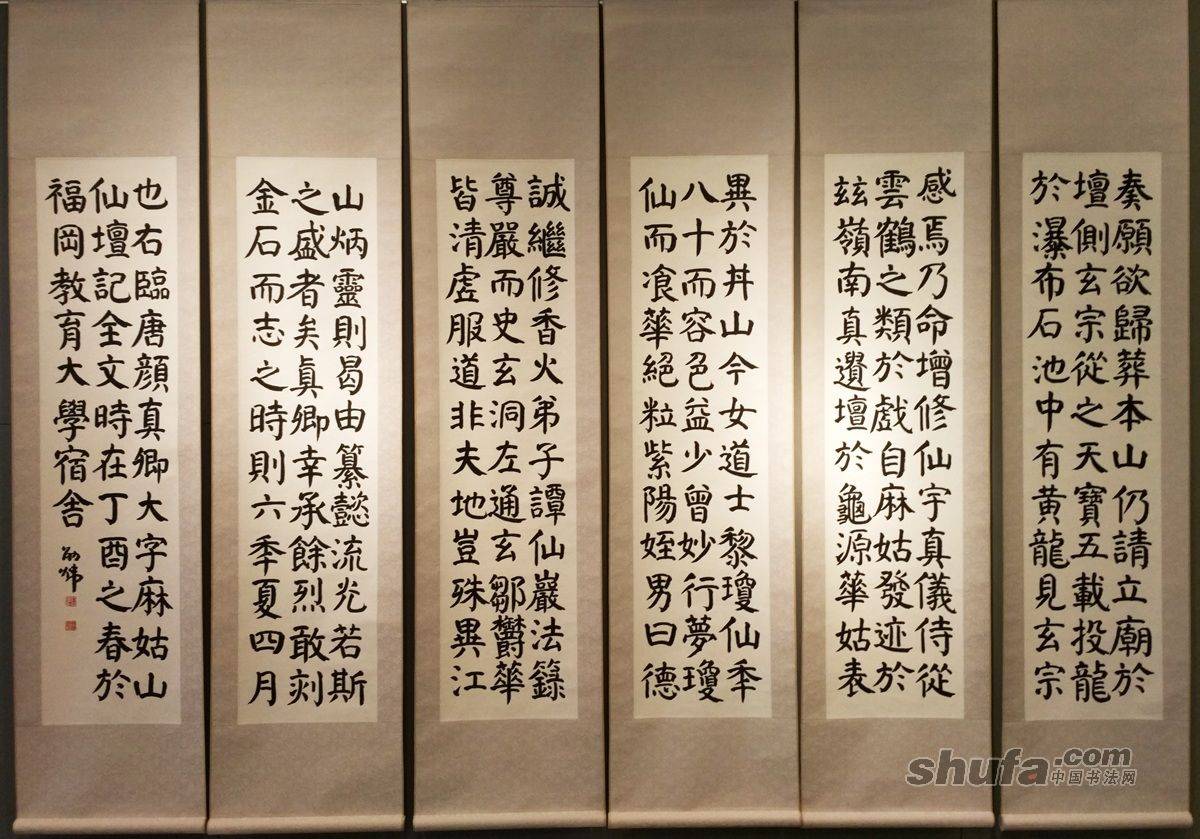 奏願欲歸葬本山仍請立廟於
壇側玄宗從之天寶五載投龍
於瀑布石池中有黃龍見玄宗
感焉乃命增修仙宇真儀侍從
雲鶴之類於戲自麻姑發迹於
玆嶺南真遺壇於龜源華姑表
異於丼山今女道士黎瓊仙秊
八十而容色益少曾妙行夢瓊
仙而飡華絕粒紫陽姪男曰德
誠繼修香火弟子譚仙巖法籙
尊嚴而史玄洞左通玄鄒欝華
皆清虛服道非夫地豈殊異江
山炳靈則曷由纂懿流光若斯
之盛者矣眞卿幸承餘烈敢刻
金石而志之時則六秊夏四月
也右臨唐顏真卿大字麻姑山
仙壇記全文時在丁酉之春於
福岡教育大學宿舍
shufa.com
中国书法网